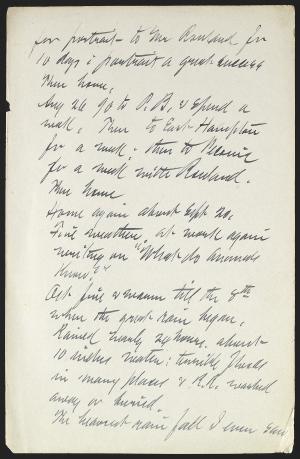 for portrait - to Mr Rowland for
10 days; portrait a great success
Then home,
Aug 26 go to P. B. & spend a
week, Then to East Hampton
for a week - then to Maine
for a week with Rowland.
Then home
Home again about Sept 20.
Fine weather, at work again
writing on "What do Animals
Know?"
Oct fine & warm till the 8th
when the great rain began,
Rained nearly 24 hours. about
10 inches water; terrible floods
in many places & R.R. washed
away or buried.
The heaviest rain fall I ever saw